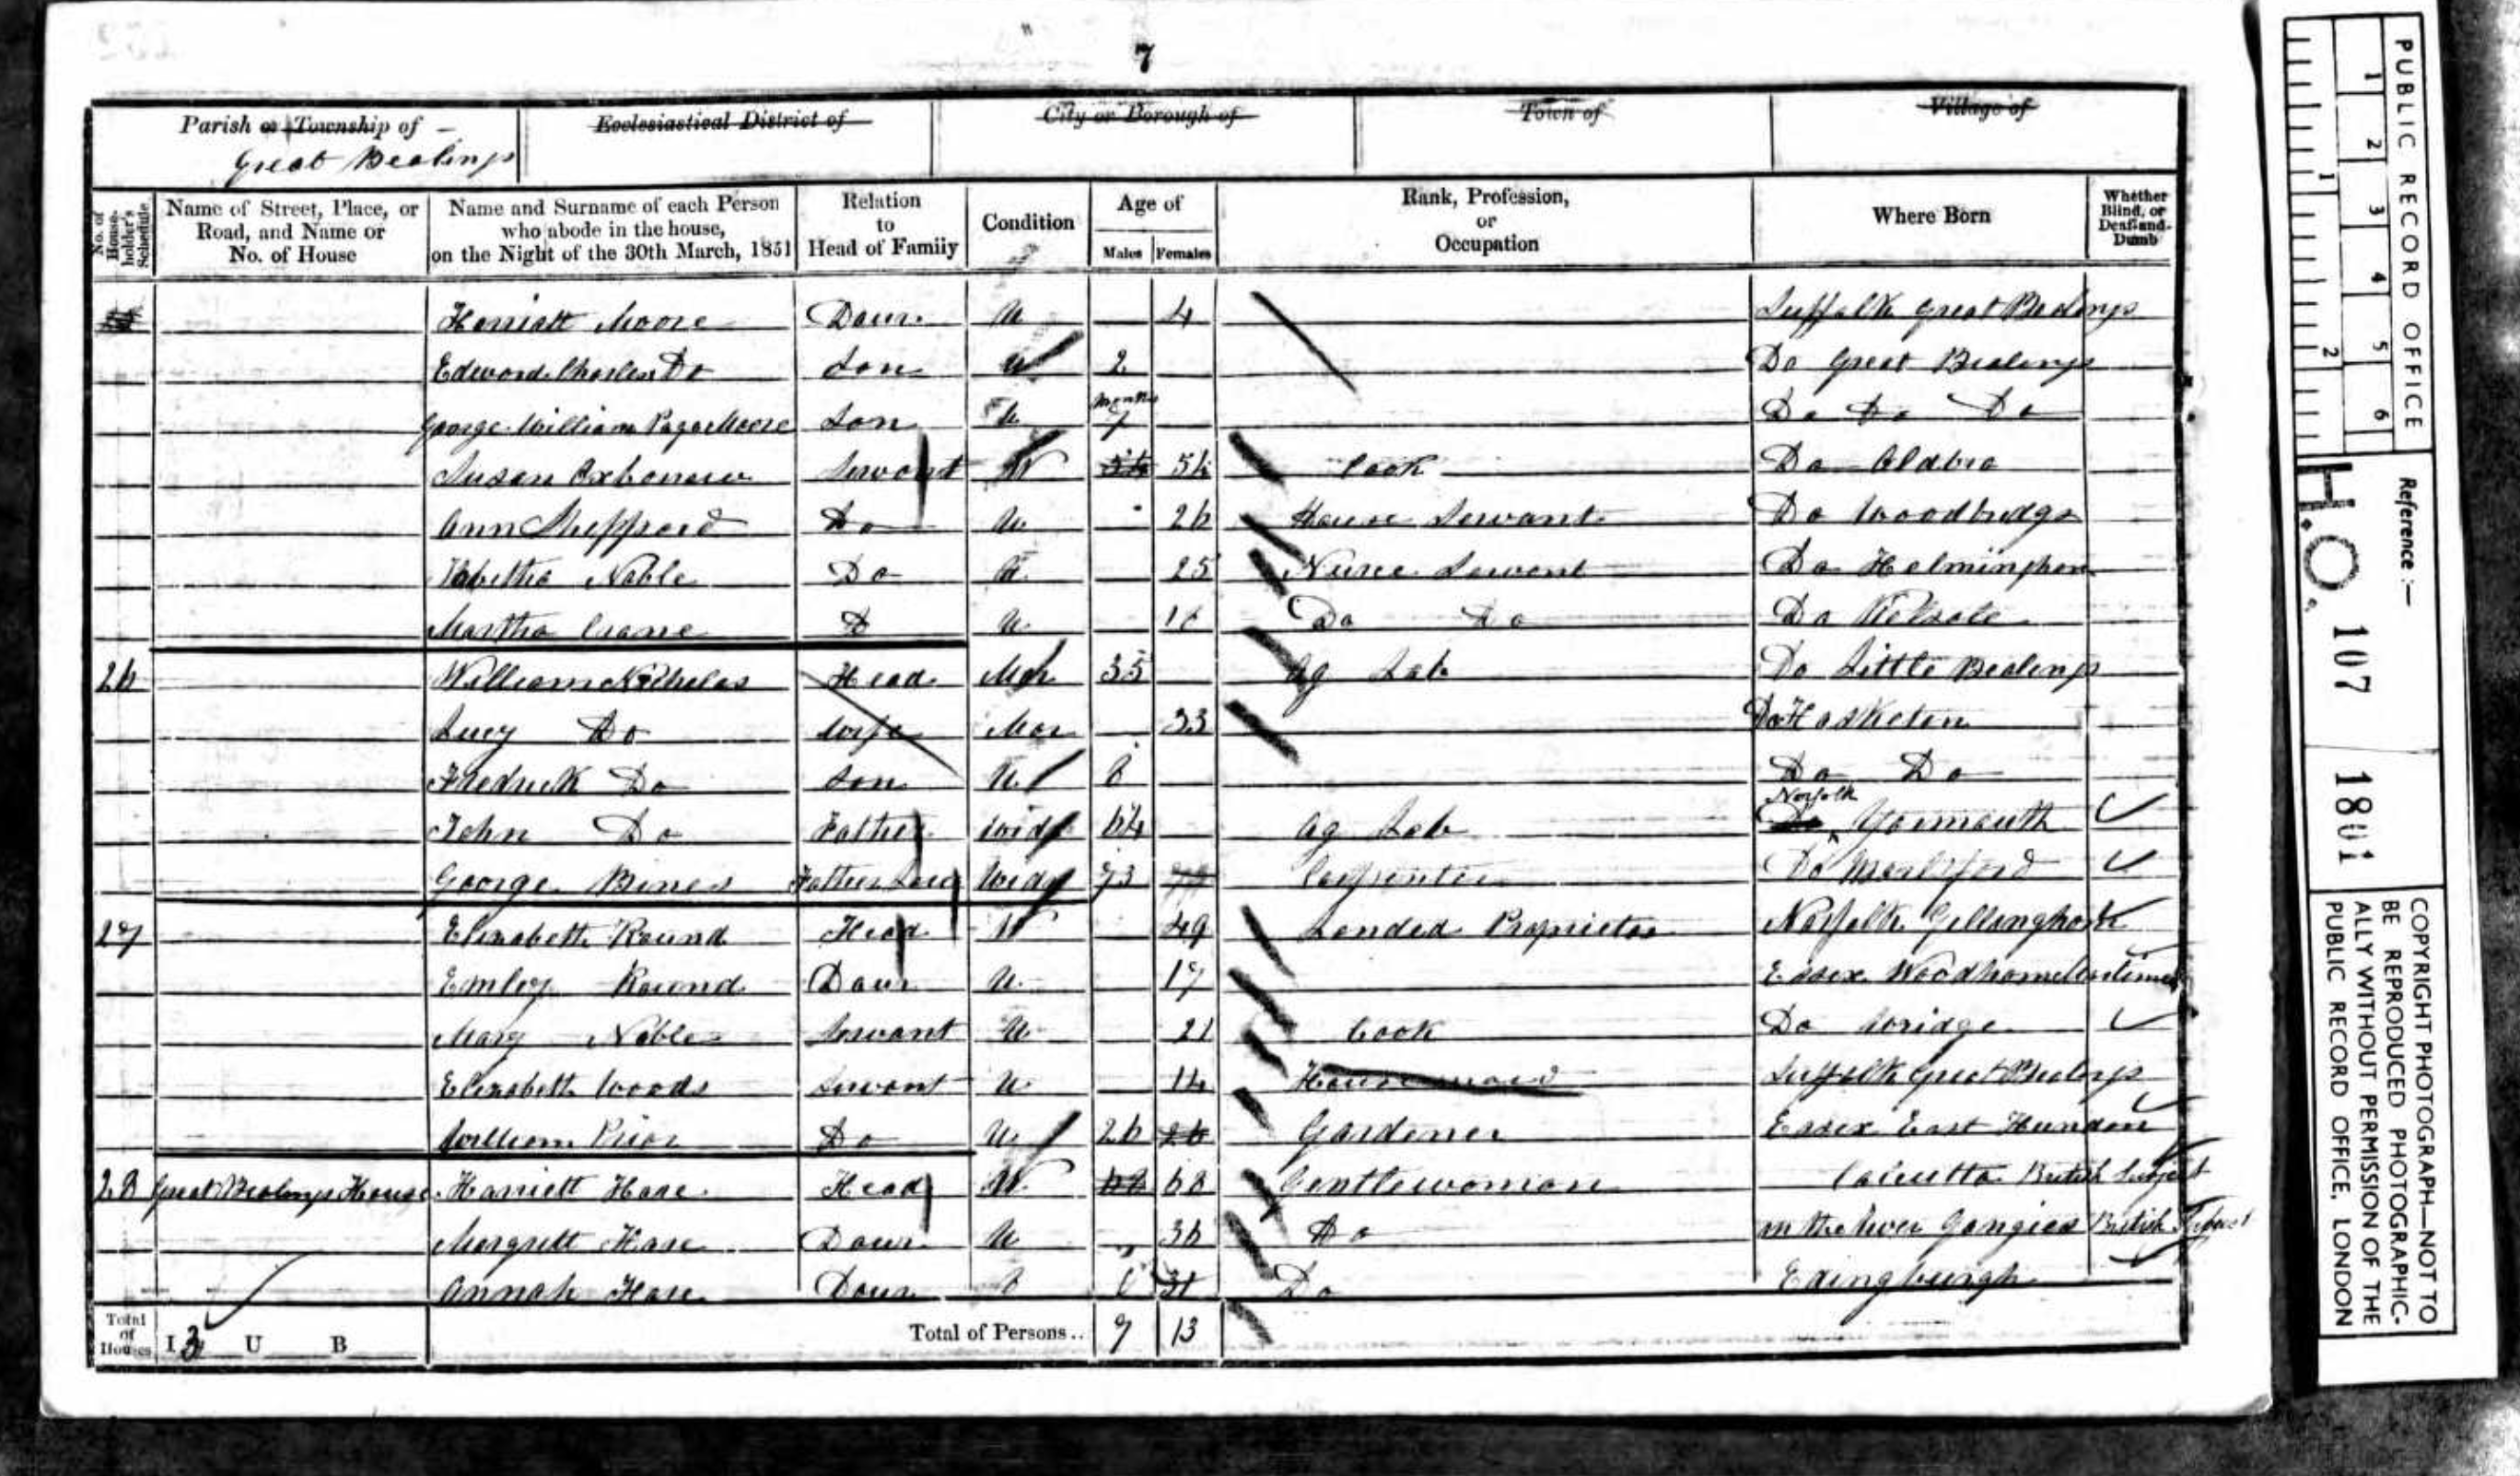 7
Parish or Township of
Great Bealings
Ecclesiastical District of
City or Borough of
Town of
Village of
No. of House-holder's Schedule
Name of Street, Place, or Road, and Name or No. of House
Name and Surname of each Person who abode in the house, on the Night of the 30th March, 1851
Relation to Head of Family
Condition
Age of
Males Females
Rank, Profession, or Occupation
Where Born
Whether Blind, or Deaf-and-Dumb
Harriott Moore Daur. U 4 Suffolk Great Bealings
Edward Charles Do Son U 2 Do Great Bealings
George William Page Moore Son U Months 7 Do Do Do
Susan Servant W 54 Cook Do Aldbro
Ann Sheppard Do U 26 House Servant Do Woodbridge
Tabitha Noble Do U 25 Nurse Servant Do Helmingham
Martha Crane D U Do Do Do Kelsale
26 William Nicholas Head Mar 35 Ag Lab Do Little Bealings
Lucy Do Wife Mar 33 Do Hasketon
Fredrick Do Son U 8 Do Do
John Do Father Wid 64 Ag Lab Norfolk Yarmouth
George Bines Father Law Wid 73 Carpenter Do
27 Elizabeth Round Head W 49 Landed Proprietor Norfolk Gillingham
Emley Round Daur U 17 Essex Woodham Mortimer
Mary Noble Servant U 21 Cook Do
Elizabeth Woods Servant U 14 Housemaid Suffolk Great Bealings
William Prior Do U 26 26 Gardener Essex East
28 Great Bealings House Harriett Hare Head W 68 Gentlewoman Calcutta British Subject
Margrett Hare Daur. U 36 Do on the River Gangies British Subject
Annah Hare Daur 31 Do Edingburgh
Total of Houses I 3 U B Total of Persons.. 9 13
PUBLIC RECORD OFFICE
1 2 3 4 5 6
1 2
Reference:—
H.O. 107 1801
COPYRIGHT PHOTOGRAPH—NOT TO
BE REPRODUCED PHOTOGRAPHIC-
ALLY WITHOUT PERMISSION OF THE
PUBLIC RECORD OFFICE, LONDON